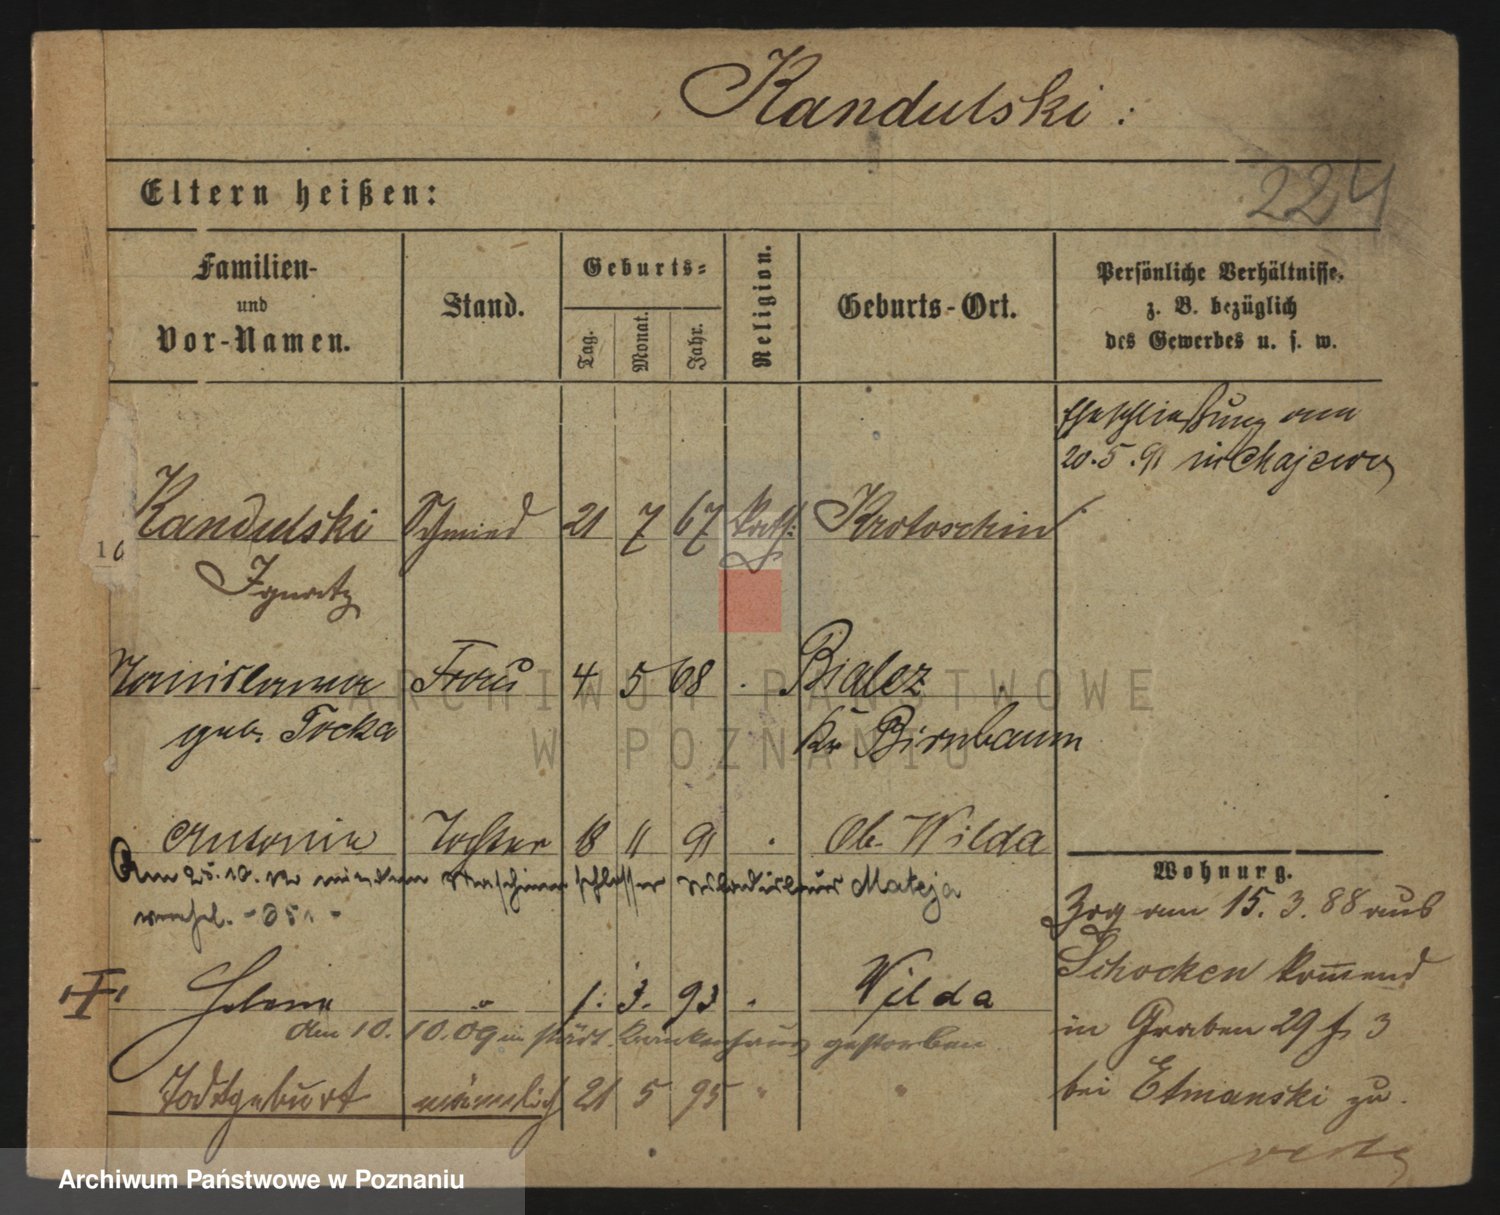 Kandulski :
Eltern heißen:
224
Familien-
und
Vor-Namen.
Stand.
Geburts-
Tag.
Monat.
Jahr.
Religion.
Geburts-Ort.
Persönliche Verhältnisse.
z. B. bezüglich
des Gewerbes u. s. w.
Eheschließung am
20.5.91 in
Kandulski Schmied 21 7 67 kath: Krotoschin
Ignatz
Stanislawa Frau 4 5 68 Bialcz
geb. Tocka Kr Birnbaum
Antonie Tochter 18 11 91 Ob. Wilda
Am 25.10.12 mit dem Maschinenschlosser Mateja
verehel.
Wohnung.
Zog am 15. 3. 88 aus
Schocken kommend
in Graben 29 3
bei Etmanski zu.
Helene 1. 3. 93 Wilda
Am 10. 10.09 im städt. Krankenhaus gestorben
Todtgeburt männlich 21 5 95
ARCHIWUM PAŃSTWOWE
W POZNANIU
Archiwum Państwowe w Poznaniu